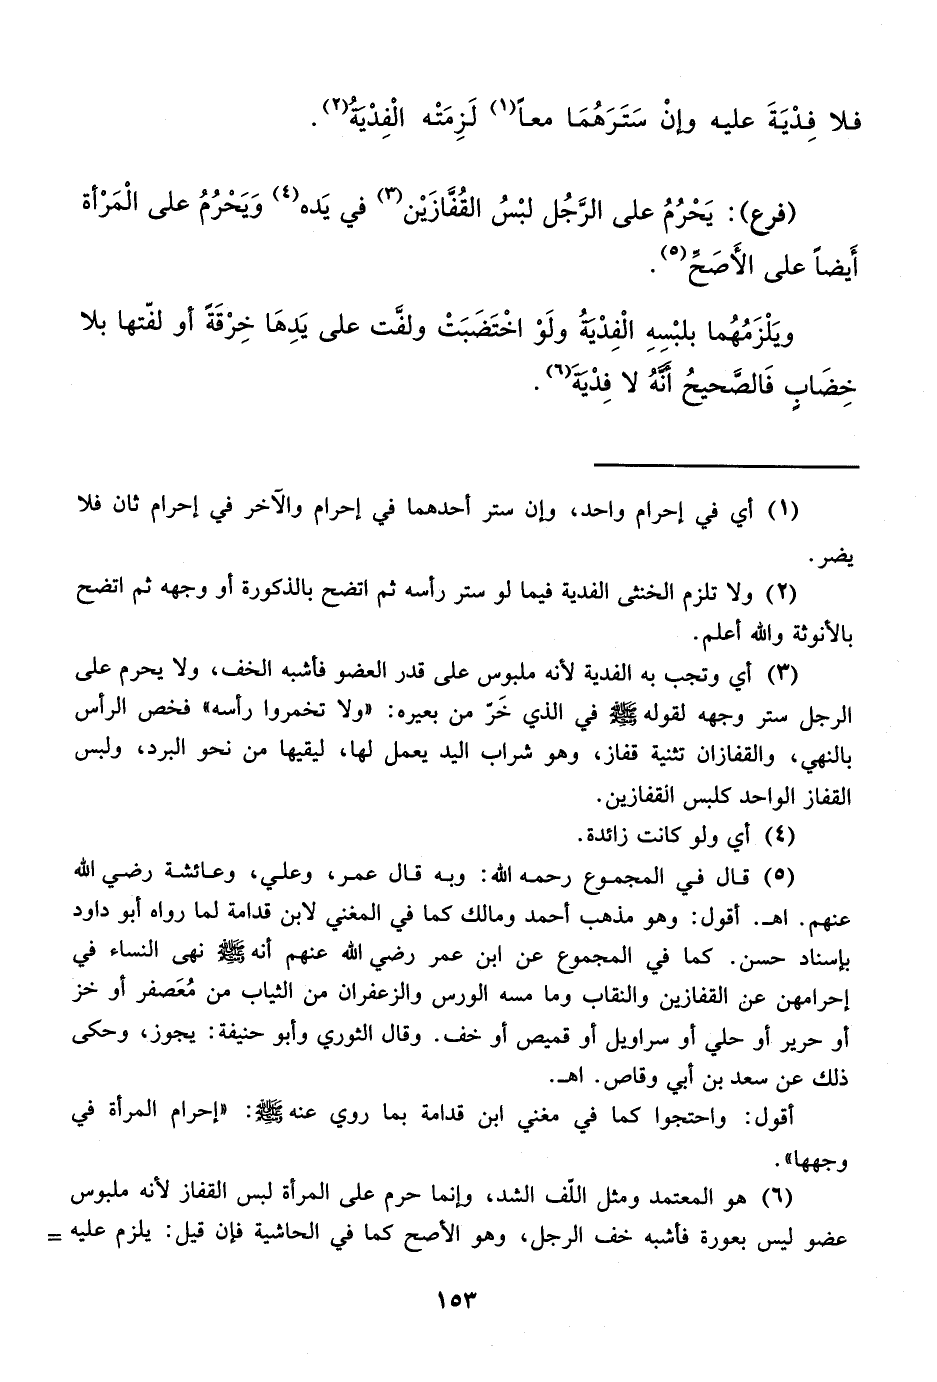 فلا فِدْيَةَ عليه وإنْ سَتَرَهُمَا معاً(١) لَزِمَتْه الْفِدْيَةُ(٢).
(فرع): يَحْرُمُ على الرَّجُل لبْسُ القُفَّازَيْن(٣) في يَده(٤) وَيَحْرُمُ على الْمَرْأة
أَيضاً على الأَصَحِّ(٥).
ويَلْزَمُهُما بلبْسِهِ الْفِدْيَةُ ولَوْ اخْتَضَبَتْ ولفَّت على يَدِهَا خِرْقَةً أو لفّتها بلا
خِضَابٍ فَالصَّحيحُ أَنَّهُ لا فِدْيَةَ(٦).
(١) أي في إحرام واحد، وإن ستر أحدهما في إحرام والآخر في إحرام ثان فلا
يضر.
(٢) ولا تلزم الخنثى الفدية فيما لو ستر رأسه ثم اتضح بالذكورة أو وجهه ثم اتضح
بالأنوثة والله أعلم.
(٣) أي وتجب به الفدية لأنه ملبوس على قدر العضو فأشبه الخف، ولا يحرم على
الرجل ستر وجهه لقوله ﷺ في الذي خَرّ من بعيره: «ولا تخمروا رأسه» فخص الرأس
بالنهي، والقفازان تثنية قفاز، وهو شراب اليد يعمل لها، ليقيها من نحو البرد، ولبس
القفاز الواحد كلبس القفازين.
(٤) أي ولو كانت زائدة.
(٥) قال في المجموع رحمه الله: وبه قال عمر، وعلي، وعائشة رضي الله
عنهم. اهـ. أقول: وهو مذهب أحمد ومالك كما في المغني لابن قدامة لما رواه أبو داود
بإسناد حسن. كما في المجموع عن ابن عمر رضي الله عنهم أنه ﷺ نهى النساء في
إحرامهن عن القفازين والنقاب وما مسه الورس والزعفران من الثياب من مُعَصفر أو خز
أو حرير أو حلي أو سراويل أو قميص أو خف. وقال الثوري وأبو حنيفة: يجوز، وحكى
ذلك عن سعد بن أبي وقاص. اهـ.
أقول: واحتجوا كما في مغني ابن قدامة بما روي عنه ﷺ: «إحرام المرأة في
وجهها».
(٦) هو المعتمد ومثل اللّف الشد، وإنما حرم على المرأة لبس القفاز لأنه ملبوس
عضو ليس بعورة فأشبه خف الرجل، وهو الأصح كما في الحاشية فإن قيل: يلزم عليه =
١٥٣